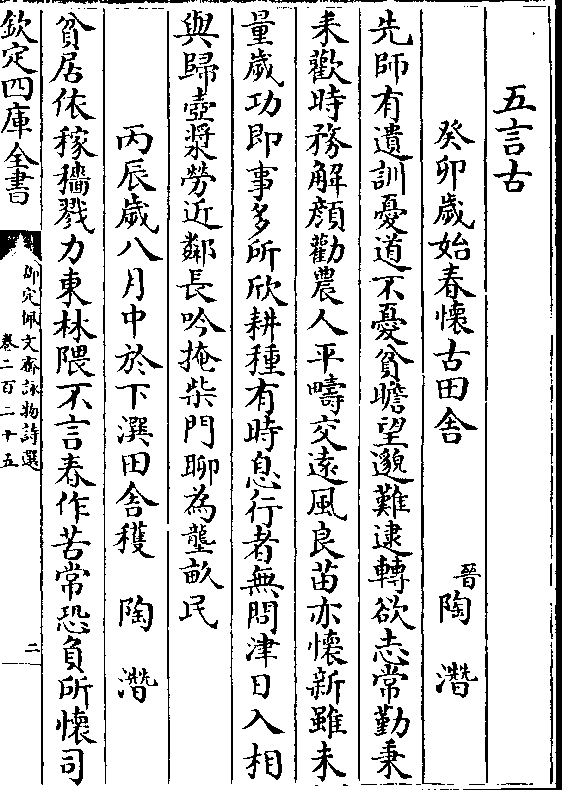 五言古
癸卯歲始春懷古田舍 晉陶潛
先師有遺訓憂道不憂貧瞻望邈難逮轉欲志常勤秉
耒歡時務解顔勸農人平疇交遠風良苗亦懷新雖未
量歲功即事多所欣耕種有時息行者無問津日入相
與歸壺漿勞近鄰長吟掩柴門聊為壟畝民
丙辰歲八月中於下潠田舍穫 陶潛
貧居依稼穡戮力東林隈不言春作苦常恐負所懷司
欽定四庫全書
御定佩文齋詠物詩選
卷二百二十五
二